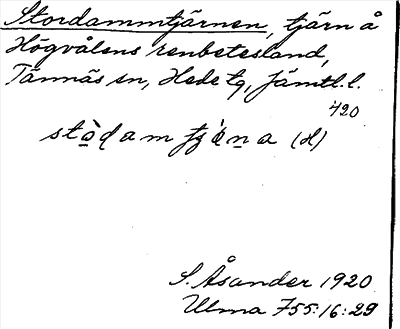 Stordammtjärnen, tjärn å
Högvålens renbetesland,
Tännäs sn, Hede tg, Jämtl. l.
420
(d)
S. Åsander 1920
Ulma 755:16:29